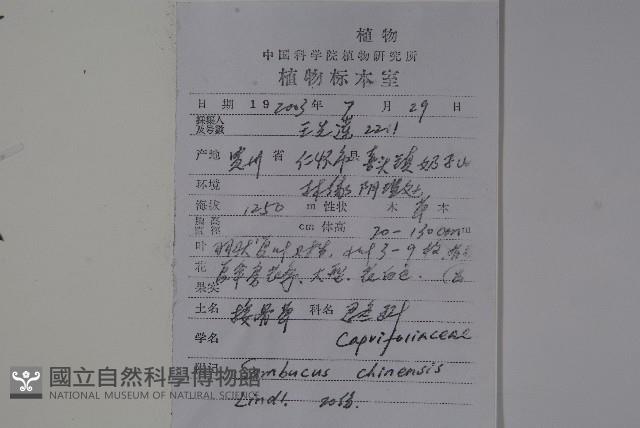 植物
中国科学院植物研究所
植物标本室
日期 19 2003 年 7 月 29 日
採集人
及号數 王先莲 2211
产地 贵州 省 仁怀市 县
环境 林缘 阴湿处
海拔 1250 m 性状 木 草 本
cm 体高 20-130cm
叶 羽状复叶对生, 小叶3-9枚
花 大型, 花白色.
果实
土名 接骨草 科名 忍冬科
学名 Caprifoliaceae
附记 Sambucus chinensis
Lindl.
國立自然科學博物館
NATIONAL MUSEUM OF NATURAL SCIENCE